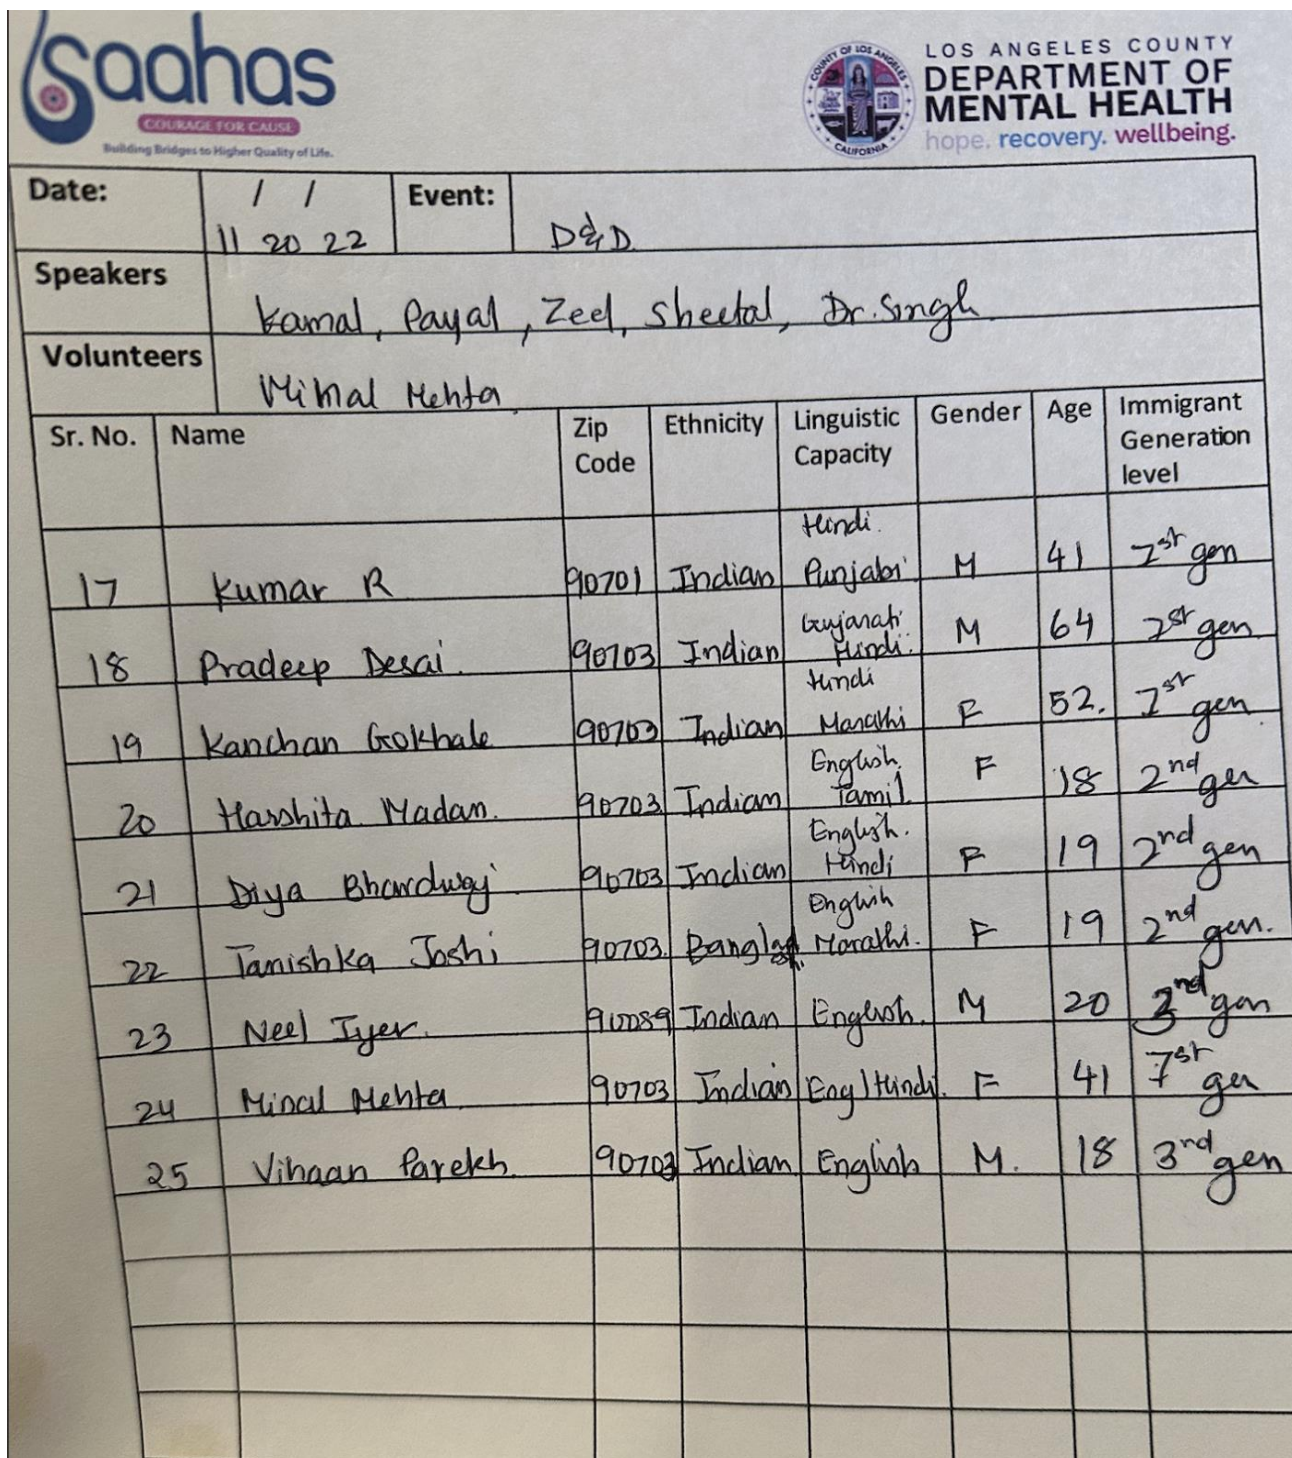 Saahas
COURAGE FOR CAUSE
Building Bridges to Higher Quality of Life.
COUNTY OF LOS ANGELES
CALIFORNIA
LOS ANGELES COUNTY
DEPARTMENT OF
MENTAL HEALTH
hope. recovery. wellbeing.
Date: 11/20/22 Event: D&D
Speakers Kamal, Payal, Zeel, Sheetal, Dr. Singh
Volunteers Minal Mehta
Sr. No. Name Zip Code Ethnicity Linguistic Capacity Gender Age Immigrant Generation level
17 Kumar R 90701 Indian Hindi Punjabi M 41 1st gen
18 Pradeep Desai 90703 Indian Gujarati Hindi M 64 1st gen
19 Kanchan Gokhale 90703 Indian Hindi Marathi F 52. 1st gen
20 Harshita Madan. 90703 Indian English Tamil F 18 2nd gen
21 Diya Bhardwaj 90703 Indian English. Hindi F 19 2nd gen
22 Tanishka Joshi 90703 English Marathi. F 19 2nd gen.
23 Neel Iyer. 90089 Indian English. M 20 3nd gen
24 Minal Mehta 90703 Indian Eng/Hindi. F 41 1st gen
25 Vihaan Parekh 90703 Indian English M. 18 3nd gen